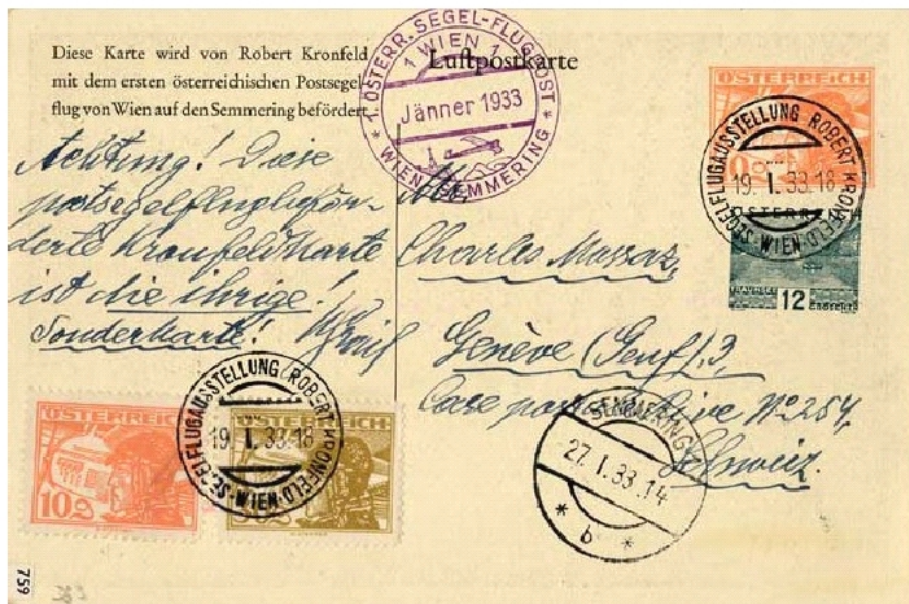 Diese Karte wird von Robert Kronfeld
mit dem ersten österreichischen Postsegel-
flug von Wien auf den Semmering befördert
Luftpostkarte
* 1. ÖSTERR. SEGEL-FLUGPOST *
1 WIEN 1
Jänner 1933
WIEN SEMMERING
ÖSTERREICH
SEGELFLUGAUSSTELLUNG ROBERT KRONFELD
19. I. 33. 18
WIEN
12
GROSCHEN
Achtung! Diese
postsegelflugbeför-
derte Kronfeldkarte
ist die ihrige!
Sonderkarte!
Charles Massaz,
Genève (Genf) 3,
Case Rive No 254,
Schweiz.
SEGELFLUGAUSSTELLUNG ROBERT KRONFELD
19. I. 33. 18
WIEN
ÖSTERREICH
10
ÖSTERREICH
SEMMERING
27. I. 33. 14
* b *
759